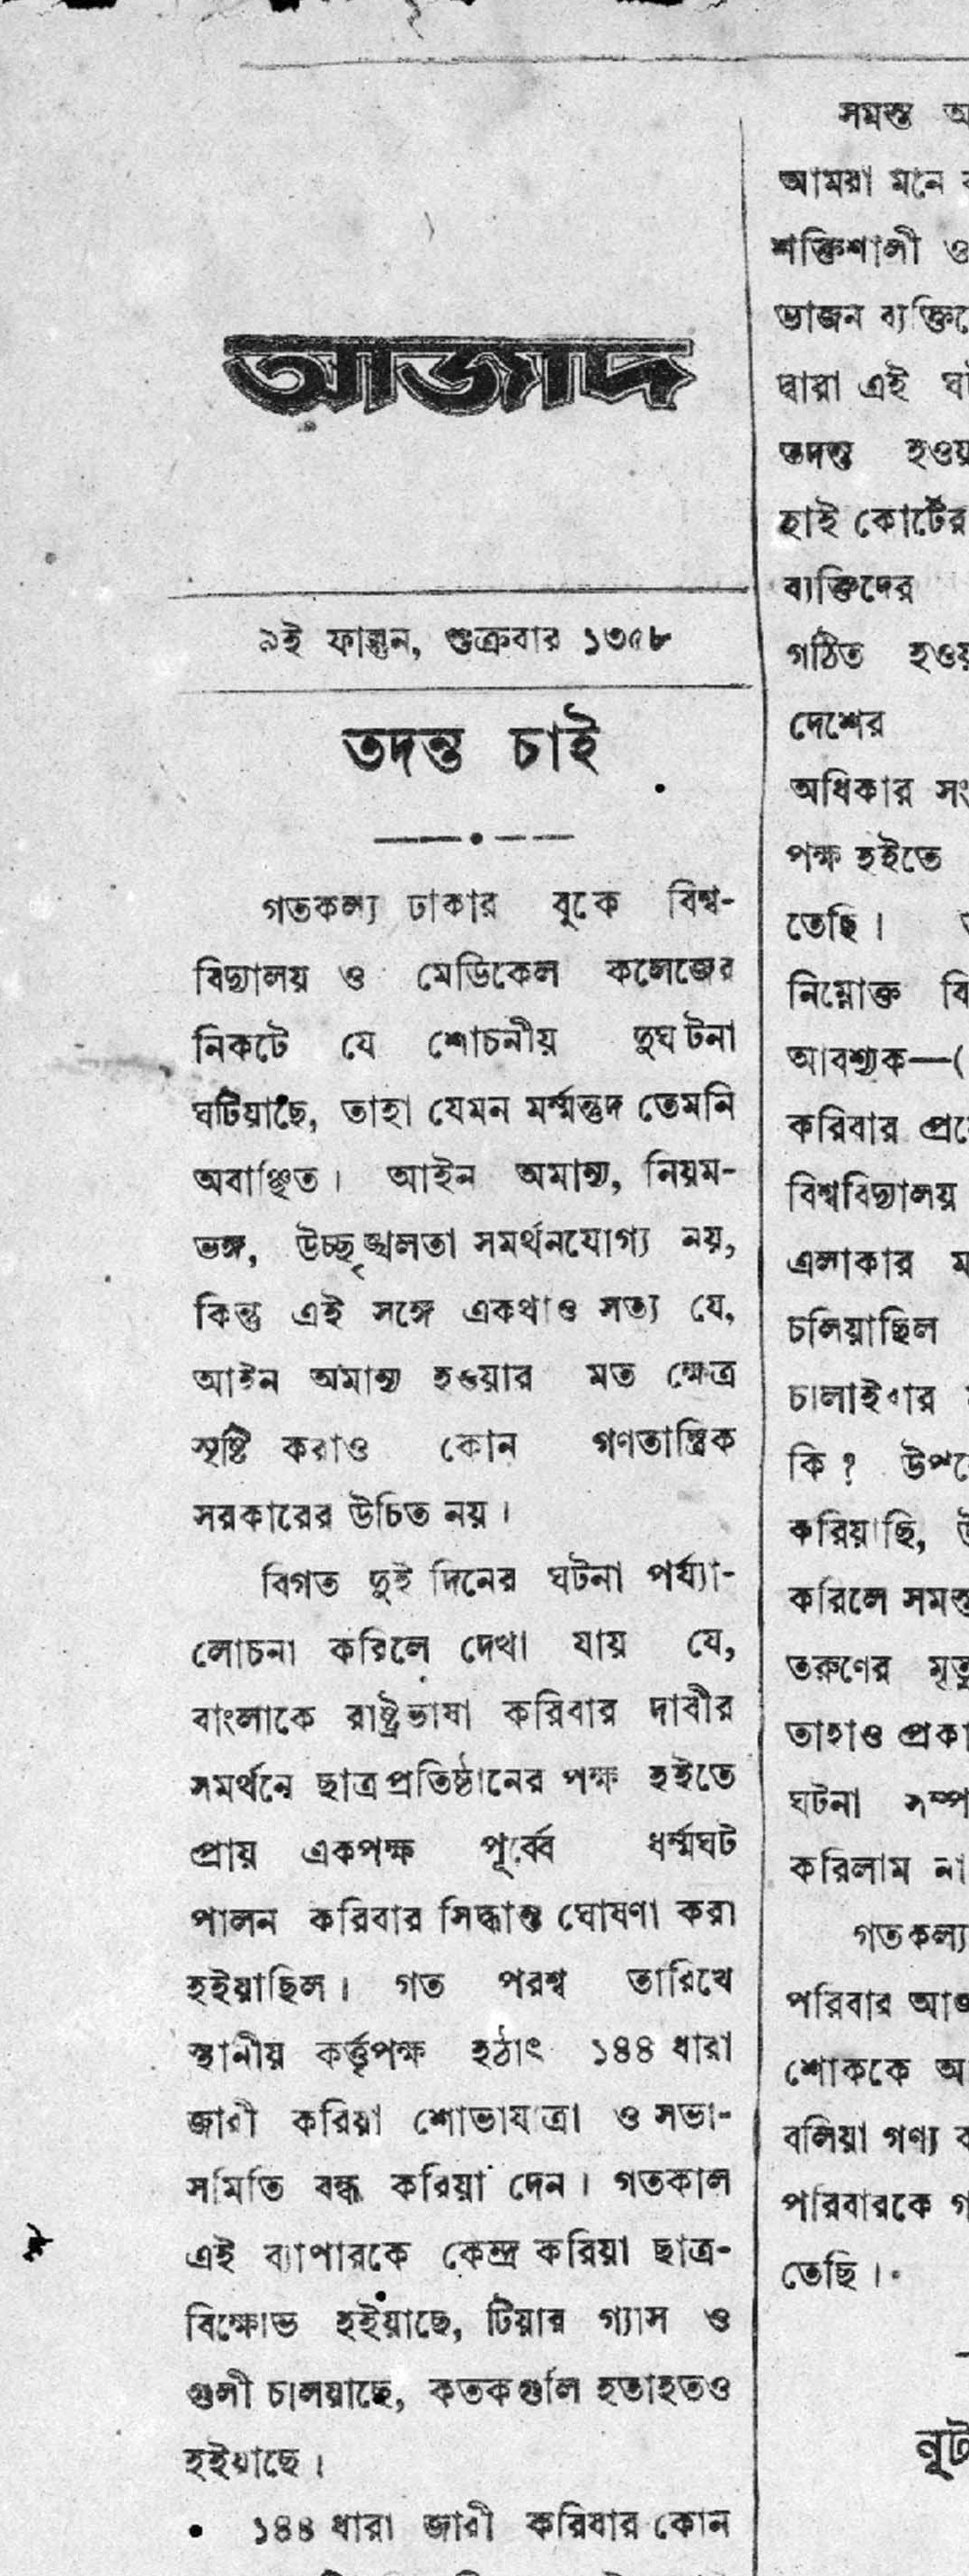 আজাদ
৯ই ফাল্গুন, শুক্রবার ১৩৫৮
তদন্ত চাই
গতকল্য ঢাকার বুকে বিশ্ব-
বিদ্যালয় ও মেডিকেল কলেজের
নিকটে যে শোচনীয় দুঘটনা
ঘটিয়াছে, তাহা যেমন মর্ম্মন্তুদ তেমনি
অবাঞ্ছিত। আইন অমান্য, নিয়ম-
ভঙ্গ, উচ্ছৃঙ্খলতা সমর্থনযোগ্য নয়,
কিন্তু এই সঙ্গে একথাও সত্য যে,
আইন অমান্য হওয়ার মত ক্ষেত্র
সৃষ্টি করাও কোন গণতান্ত্রিক
সরকারের উচিত নয়।
বিগত দুই দিনের ঘটনা পর্য্যা-
লোচনা করিলে দেখা যায় যে,
বাংলাকে রাষ্ট্রভাষা করিবার দাবীর
সমর্থনে ছাত্রপ্রতিষ্ঠানের পক্ষ হইতে
প্রায় একপক্ষ পূর্ব্বে ধর্ম্মঘট
পালন করিবার সিদ্ধান্ত ঘোষণা করা
হইয়াছিল। গত পরশ্ব তারিখে
স্থানীয় কর্ত্তৃপক্ষ হঠাৎ ১৪৪ ধারা
জারী করিয়া শোভাযাত্রা ও সভা-
সমিতি বন্ধ করিয়া দেন। গতকাল
এই ব্যাপারকে কেন্দ্র করিয়া ছাত্র-
বিক্ষোভ হইয়াছে, টিয়ার গ্যাস ও
গুলী চলিয়াছে, কতকগুলি হতাহতও
হইয়াছে।
১৪৪ ধারা জারী করিবার কোন
সমস্ত
আমরা মনে
শক্তিশালী ও
ভাজন
দ্বারা এই
তদন্ত
হাই কোর্টের
ব্যক্তিদের
গঠিত
দেশের
অধিকার
পক্ষ হইতে
তেছি।
নিম্নোক্ত
আবশ্যক—(
করিবার
বিশ্ববিদ্যালয়
এলাকার
চলিয়াছিল
চালাইবার
কি?
করিয়াছি,
করিলে সমস্ত
তরুণের
তাহাও
ঘটনা
করিলাম না
গতকল্য
পরিবার
শোককে
বলিয়া গণ্য
পরিবারকে
তেছি।